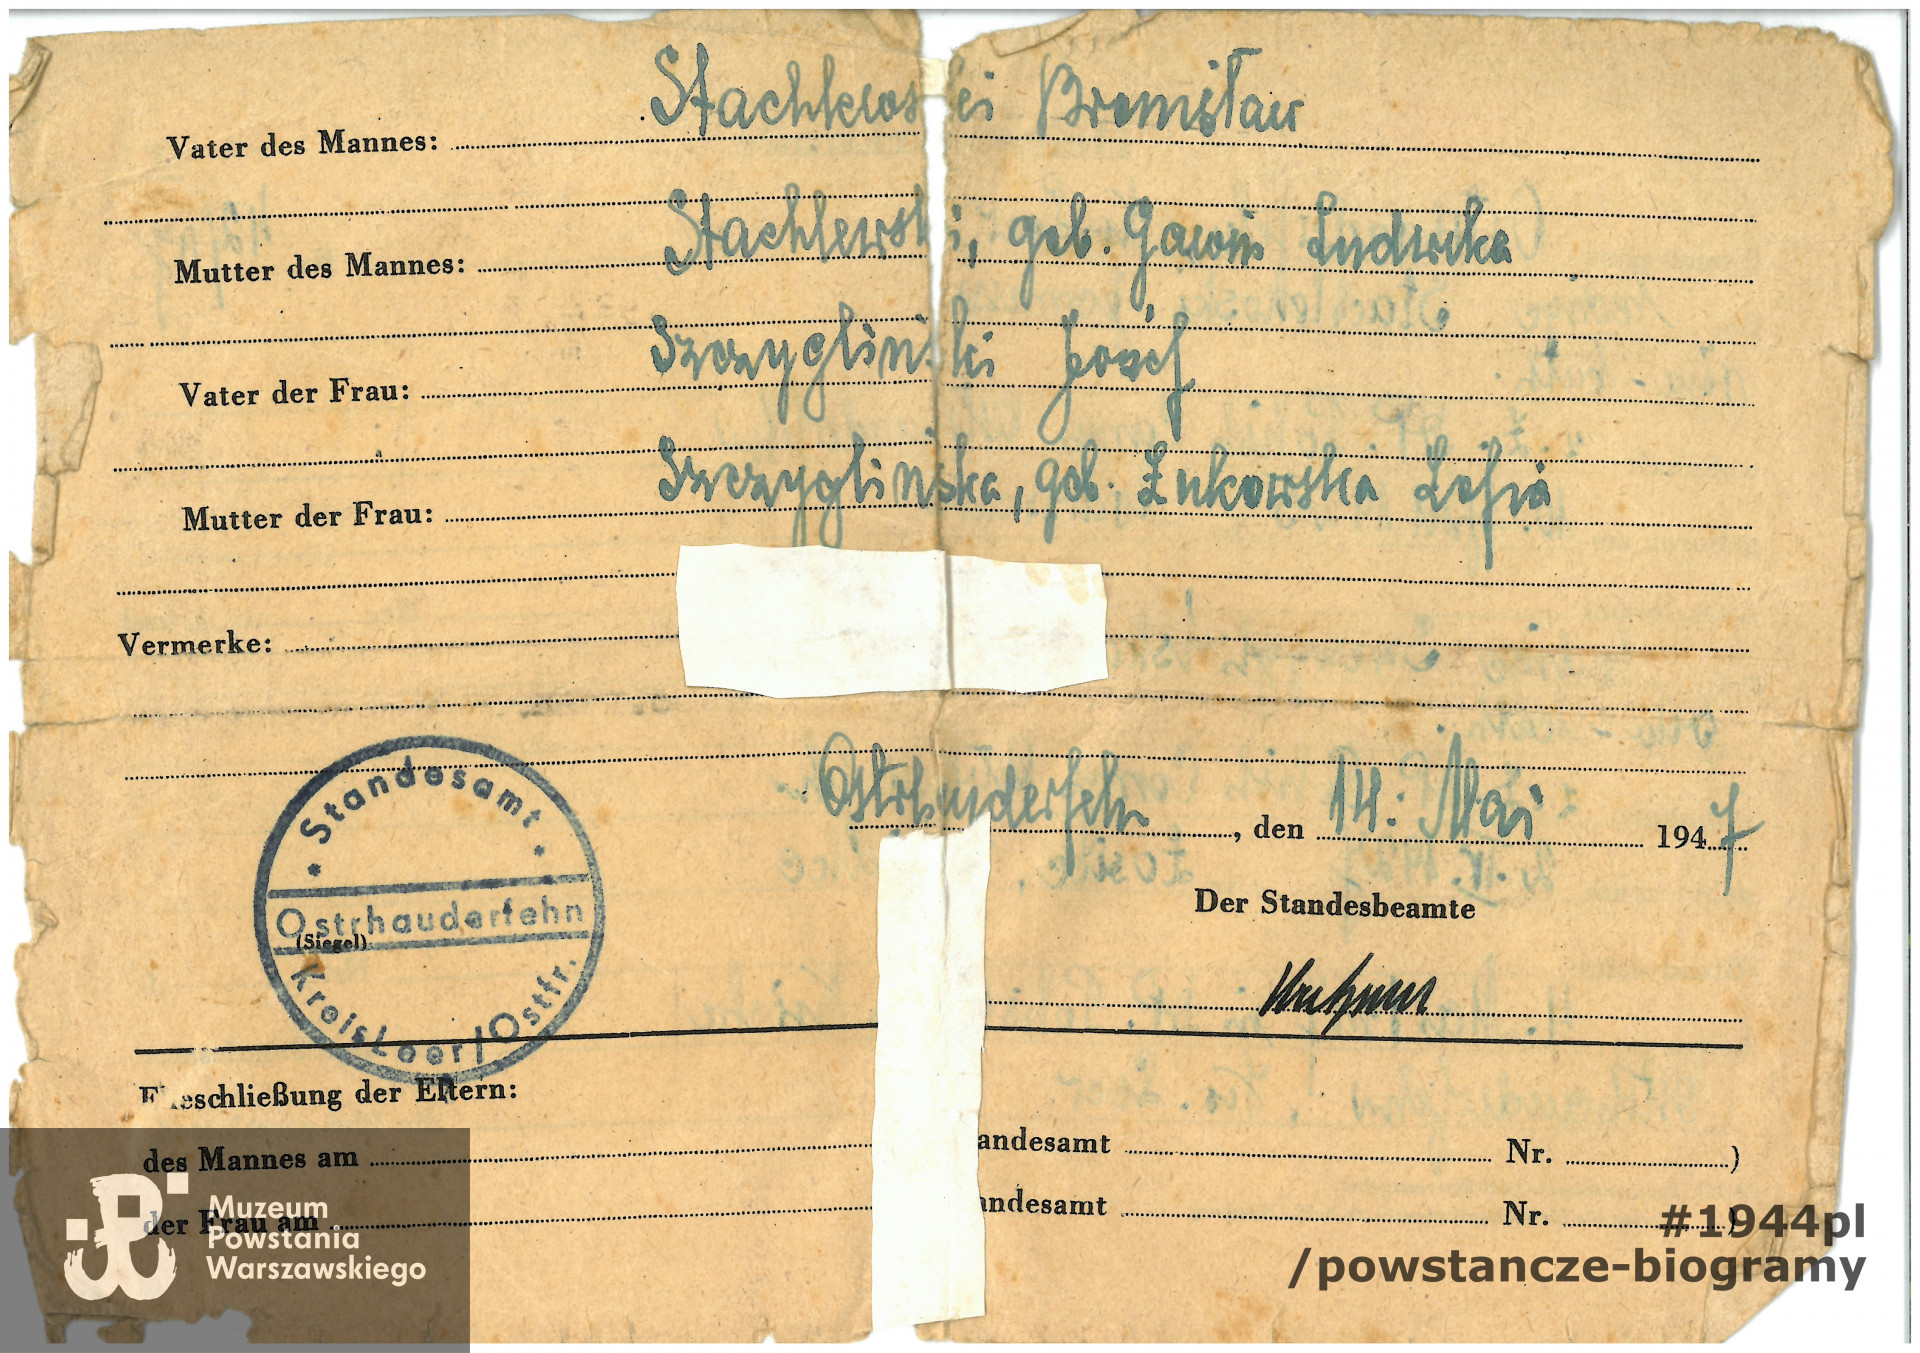 Vater des Mannes: Stachlewski Bronisław
Mutter des Mannes: Stachlewski, geb. Gawin Ludwika
Vater der Frau: Szczygliński Josef
Mutter der Frau: Szczyglińska, geb. Łukowska Zofia
Vermerke:
Ostrhauderfehn, den 14. Mai 1947
Der Standesbeamte
Standesamt
Ostrhauderfehn
(Siegel)
Kreis Leer/Ostfr.
Eheschließung der Eltern:
des Mannes am andesamt Nr. )
der Frau am ndesamt Nr. )
Muzeum
Powstania
Warszawskiego
#1944pl
/powstancze-biogramy